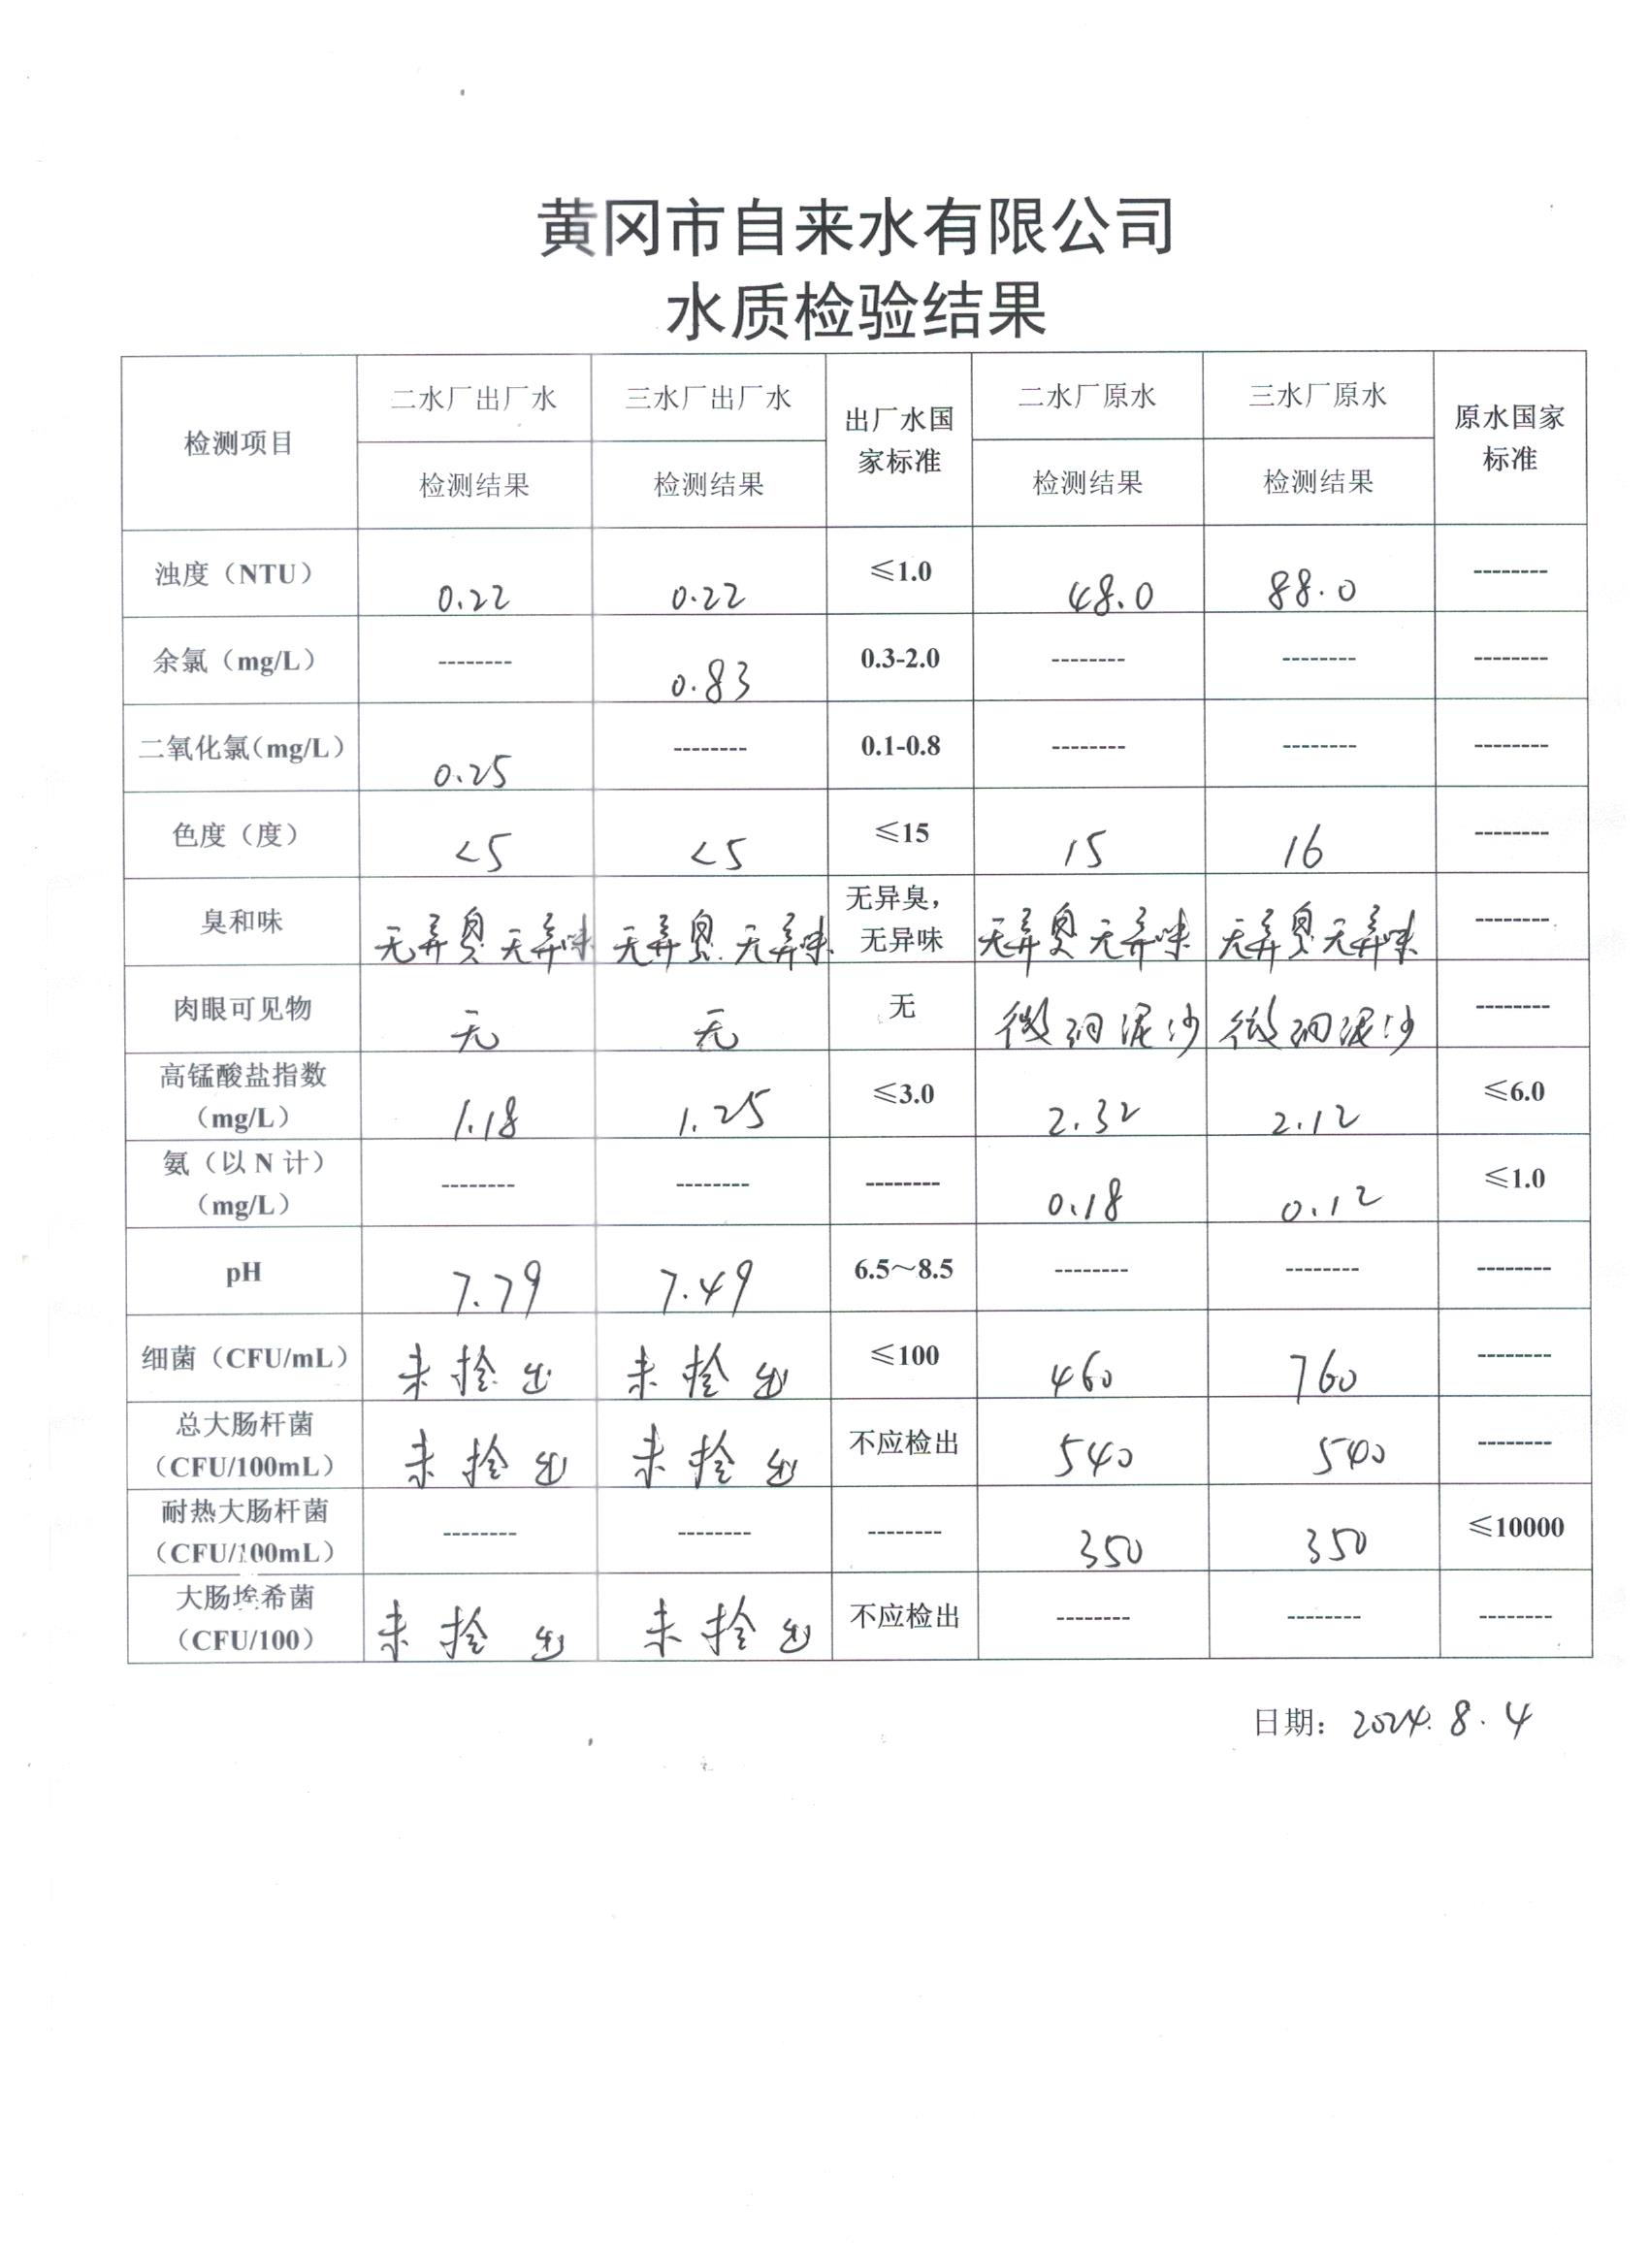 黄冈市自来水有限公司
水质检验结果
检测项目 二水厂出厂水 三水厂出厂水 出厂水国家标准 二水厂原水 三水厂原水 原水国家标准
检测结果 检测结果 检测结果 检测结果
浊度（NTU） 0.22 0.22 ≤1.0 48.0 88.0 --------
余氯（mg/L） -------- 0.83 0.3-2.0 -------- -------- --------
二氧化氯（mg/L） 0.25 -------- 0.1-0.8 -------- -------- --------
色度（度） <5 <5 ≤15 15 16 --------
臭和味 无异臭.无异味 无异臭.无异味 无异臭，无异味 无异臭无异味 无异臭无异味 --------
肉眼可见物 无 无 无 微细泥沙 微细泥沙 --------
高锰酸盐指数（mg/L） 1.18 1.25 ≤3.0 2.32 2.12 ≤6.0
氨（以 N 计）（mg/L） -------- -------- -------- 0.18 0.12 ≤1.0
pH 7.79 7.49 6.5～8.5 -------- -------- --------
细菌（CFU/mL） 未检出 未检出 ≤100 460 760 --------
总大肠杆菌（CFU/100mL） 未检出 未检出 不应检出 540 540 --------
耐热大肠杆菌（CFU/100mL） -------- -------- -------- 350 350 ≤10000
大肠埃希菌（CFU/100） 未检出 未检出 不应检出 -------- -------- --------
日期：2024.8.4